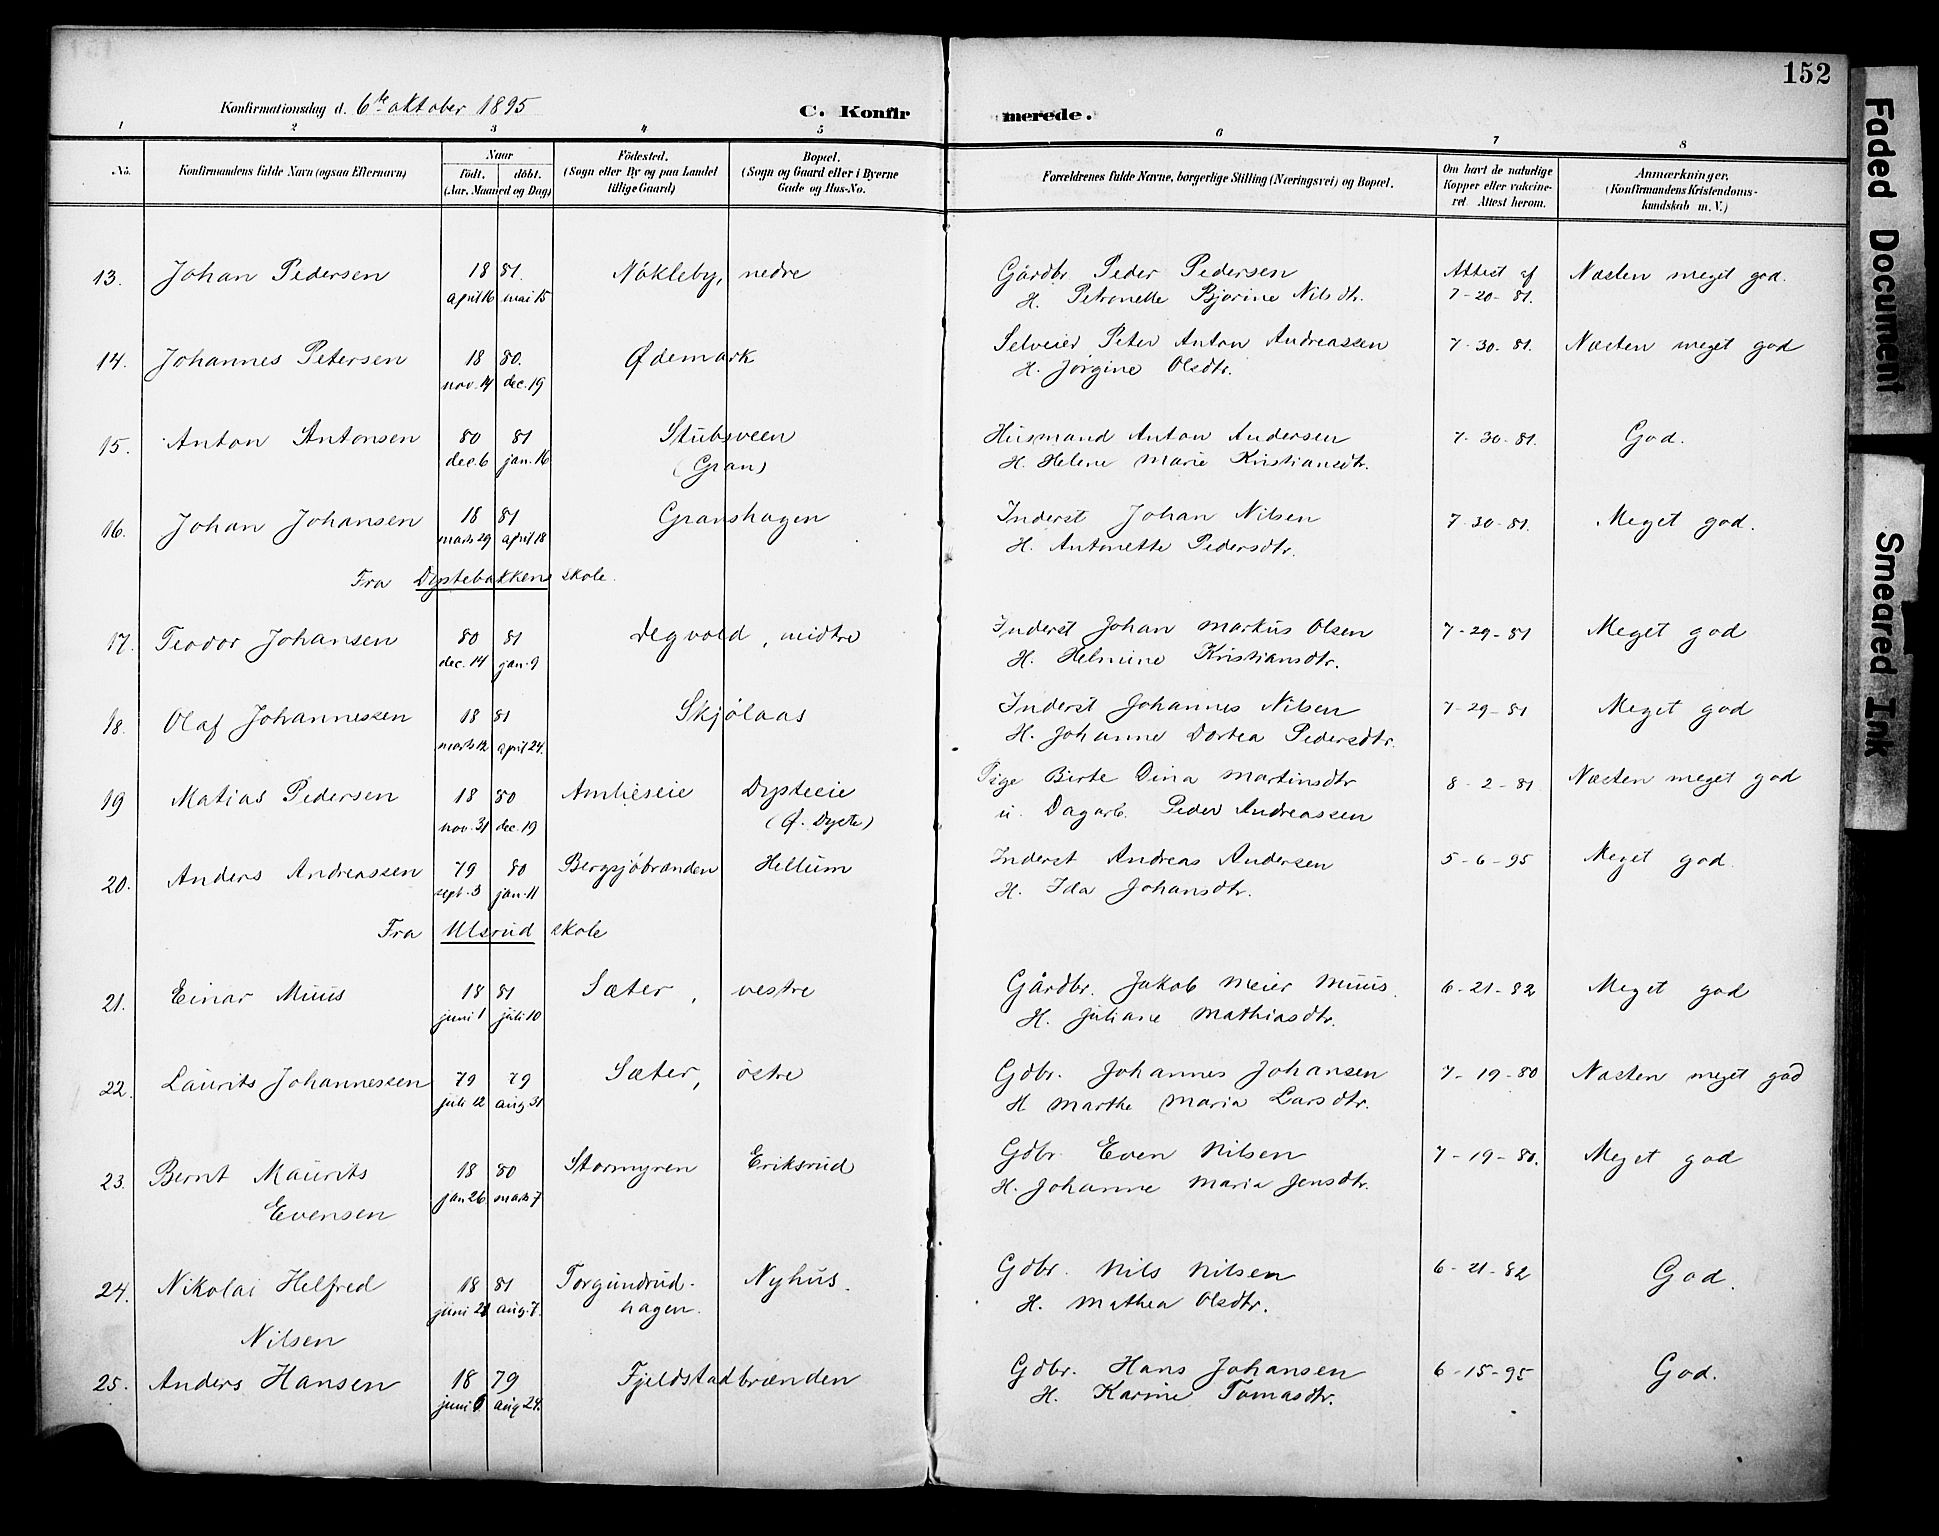 152
Konfirmationsdag d. 6te oktober 1895
C. Konfirmerede.
1 2 3 4 5 6 7 8
No. Konfirmandens fulde Navn (ogsaa Efternavn) Naar Födt. döbt. (Aar, Maaned og Dag) Födested. (Sogn eller By og paa Landet tillige Gaard) Bopæl. (Sogn og Gaard eller i Byerne Gade og Hus-No. Forældrenes fulde Navne, borgerlige Stilling (Næringsvei) og Bopæl. Om havt de naturlige Kopper eller vakcineret. Attest herom. Anmærkninger. (Konfirmandens Kristendomskundskab m. V.)
13. Johan Pedersen 18 81. Nökleby, nedre Gårdbr. Peder Pedersen Attest af Næsten meget god.
april 16 mai 15 H. Petronelle Bjorine Nilsdtr. 7-20-81.
14. Johannes Petersen 18 80. Ødemark Selveier Peter Anton Andreassen 7-30-81. Næsten meget god
nov. 14 dec. 19 H. Jørgine Olsdtr.
15. Anton Antonsen 80 81 Stubsveen Husmand Anton Andersen 7-30-81. God.
dec. 6 jan. 16 (Gran) H. Helene Marie Kristiansdtr.
16. Johan Johansen 18 81 Granshagen Inderst Johan Nilsen 7-30-81. Meget god.
marts 29 april 18 H. Antonette Pedersdtr.
Fra Dystebakkens skole.
17. Teodor Johansen 80 81 Degvold, midtre Inderst Johan Markus Olsen 7-29-81 Meget god
dec. 14 jan. 9 H. Helmine Kristiansdtr.
18. Olaf Johannessen 18 81 Skjølaas Inderst Johannes Nilsen 7-29-81 Meget god
marts 12 april 24. H. Johanne Dortea Pedersdtr.
19 Matias Pedersen 18 80 Amlieseie Dysteeie Pige Berte Dina Martinsdtr 8-2-81 Næsten meget god
nov. 31 dec. 19 (Ø. Dyste) u. Dagarb. Peder Andreassen
20. Anders Andreassen 79 80 Bergsjöbrænden Hellum Inderst Andreas Andersen 5-6-95 Meget god.
sept. 3 jan. 11 H. Ida Johansdtr.
Fra Ulsrud skole
21. Einar Muus 18 81 Sæter, vestre Gårdbr. Jakob Meier Muus. 6-21-82 Meget god
juni 1 juli 10 H. Juliane Mathiasdtr.
22. Laurits Johannessen 79 79 Sæter, östre Gdbr. Johannes Johansen 7-19-80 Næsten meget god
juli 12 aug 31 H Marthe Maria Larsdtr.
23. Bernt Maurits 18 80 Stormyren Eriksrud Gdbr. Even Nilsen 7-19-80. Meget god
Evensen jan 26 marts 7 H. Johanne Maria Jensdtr.
24. Nikolai Helfred 18 81 Torgundrud- Nyhus. Gdbr. Nils Nilsen 6-21-82 God.
juni 21 aug. 7. hagen. H. Mathea Olsdtr.
Nilsen
25. Anders Hansen 18 79 Fjeldstadbrænden Gdbr. Hans Johansen 6-15-95 God.
juni 6 aug 24. H. Karine Tomasdtr.
Faded Document
Smeared Ink